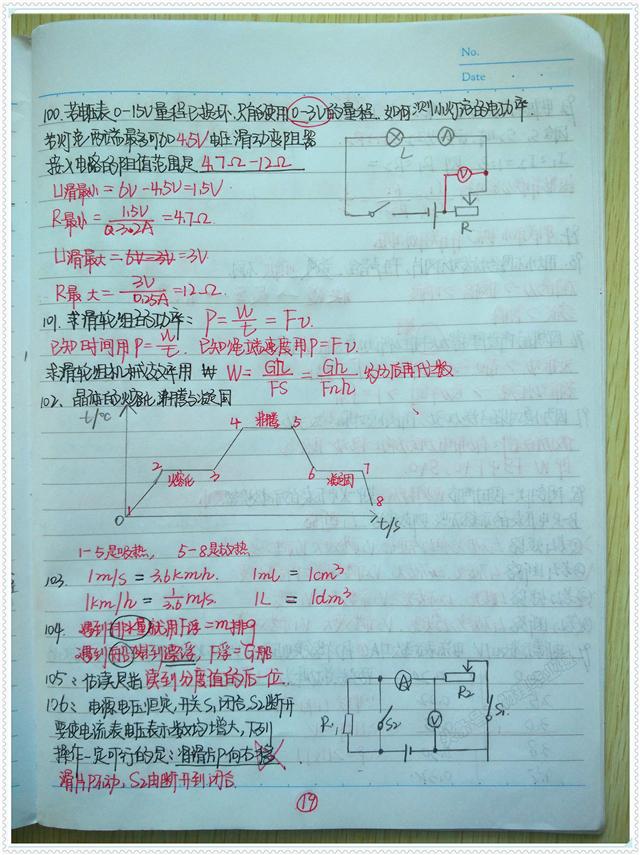 No.
Date
100. 若电压表0-15V量程已损坏,只能使用0-3V的量程,如何测小灯泡的电功率.
若灯泡两端最多可加4.5V电压 滑动变阻器
接入电路的阻值范围是 4.7Ω-12Ω
L
V
R
U滑最小=6V-4.5V=1.5V
R最小=1.5V/0.32A=4.7Ω
U滑最大=6V-3V=3V
R最大=3V/0.25A=12Ω
101. 求滑轮组的功率: P=W/t=Fv.
已知时间用P=W/t. 已知绳端速度用P=Fv
求滑轮组机械效率用 W=Gh/FS=Gh/Fnh 约分后再代数
102、晶体的熔化,沸腾与凝固
t/℃
4 沸腾 5
2 熔化 3 6 凝固 7
0 1 8
t/s
1-5是吸热, 5-8是放热
103. 1m/s=3.6km/h. 1ml=1cm³
1km/h=1/3.6 m/s. 1L=1dm³
104. 遇到排水量就用F浮=m排g
遇到 到漂浮, F浮=G那
105: 估读是指读到分度值的后一位.
106: 电源电压恒定,开关S1闭合S2断开
要使电流表电压表示数均增大,下列
操作一定可行的是: 将滑片P向右移
滑片P不动,S2由断开到闭合.
A
R2
R1
S2
V
S1
19